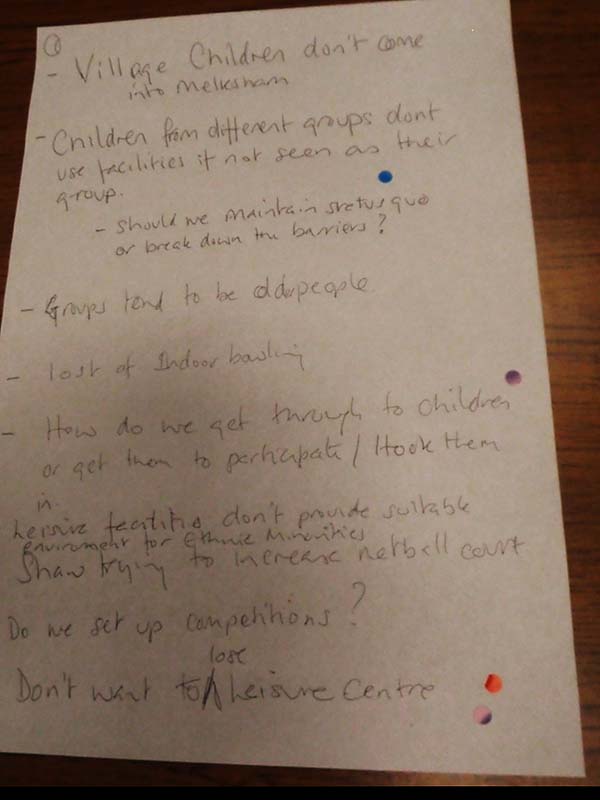 ①
- Village Children don't come
into Melksham
- Children from different groups dont
use facilities if not seen as their
group.
- Should we maintain status quo
or break down the barriers?
- Groups tend to be older people
- lost of Indoor bowling
- How do we get through to children
or get them to participate / Hook them
in.
Leisure facilities don't provide suitable
enviroment for Ethnic Minorities
Shaw trying to increase netball court
Do we set up competitions?
Don't want to lose Leisure Centre